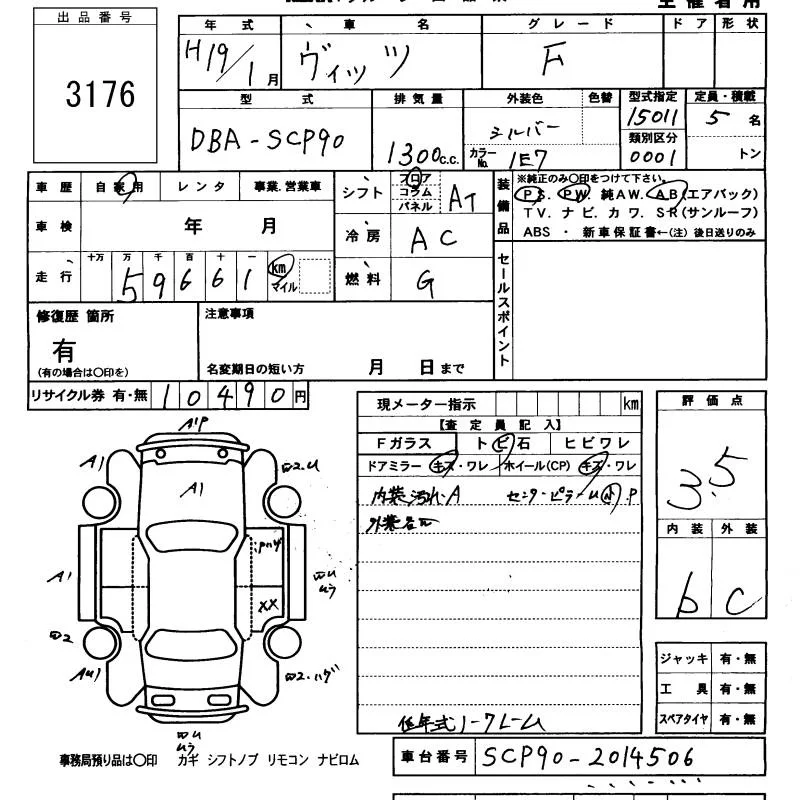 出品番号
3176
主催者用
年式 車名 グレード ドア 形状
H19/1月 ヴィッツ F
型式 排気量 外装色 色替 型式指定 定員・積載
DBA-SCP90 1300c.c. シルバー 15011 5名
カラーNo. 1E7 類別区分 0001 トン
車歴 自家用 レンタ 事業.営業車
車検 年 月
走行 十万 万 千 百 十 一
59661 km マイル
シフト フロア コラム パネル AT
冷房 AC
燃料 G
装備品
※純正のみ〇印をつけて下さい。
PS. PW. 純AW. AB(エアバック)
TV. ナビ. カワ. SR(サンルーフ)
ABS ・ 新車保証書←(注) 後日送りのみ
セールスポイント
修復歴 箇所
有
(有の場合は〇印を)
注意事項
名変期日の短い方 月 日まで
リサイクル券 有・無 10490円
現メーター指示 km
【査定員記入】
Fガラス トビ石 ヒビワレ
ドアミラー キズ・ワレ ホイール(CP) キズ・ワレ
内装汚れ・A センターピラーム P
低年式
評価点
3.5
内装 外装
b C
ジャッキ 有・無
工具 有・無
スペアタイヤ 有・無
A1P
A1
A1
A1
XX
事務局預り品は〇印 カギ シフトノブ リモコン ナビロム
車台番号 SCP90-2014506